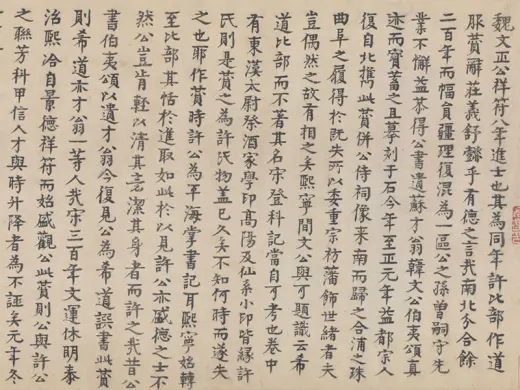 魏文正公祥符八年進士也其為同年許比部作道
服贊辭莊義舒懿乎有德之言哉南北分合餘
二百年而幅員疆理復混為一區公之孫嗣守先
業不懈益恭得公書遺蘇才翁韓文公伯夷頌真
迹而寳蓄之且摹刻于石今年至正元年益都宗人
復自北攜此贊併公侍祠像来南而歸之合浦之珠
曲阜之履得於既失所以委重宗祊藩飾世緒者夫
豈偶然之故有相之矣熙寧間文公與可題識云希
道比部而不著其名宋登科記當自可考也卷中
有東漢太尉祭酒家學印高陽及仙系小印皆縁許
氏則是贊之為許氏物盖已久矣不知何時而遂失
之也耶作贊時許公為平海掌書記耳熙寧始轉
至比部其恬於進取如此於以見許公亦盛德之士不
然公豈肯輕以清其言潔其身者而許之哉昔公
書伯夷頌以遺才翁今復見公為希道譔書此贊
則希道亦才翁一等人哉宋三百年文運休明泰
治熙洽自景德祥符而始盛觀公此贊則公與許公
之聯芳科甲信人才與時升降者為不誣矣元年冬